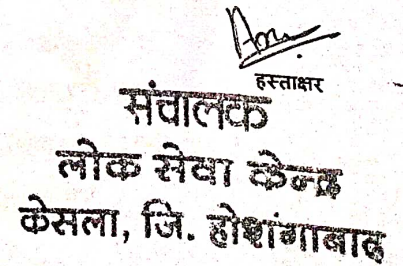 हस्ताक्षर
संचालक
लोक सेवा केन्द्र
केसला, जि. होशंगाबाद